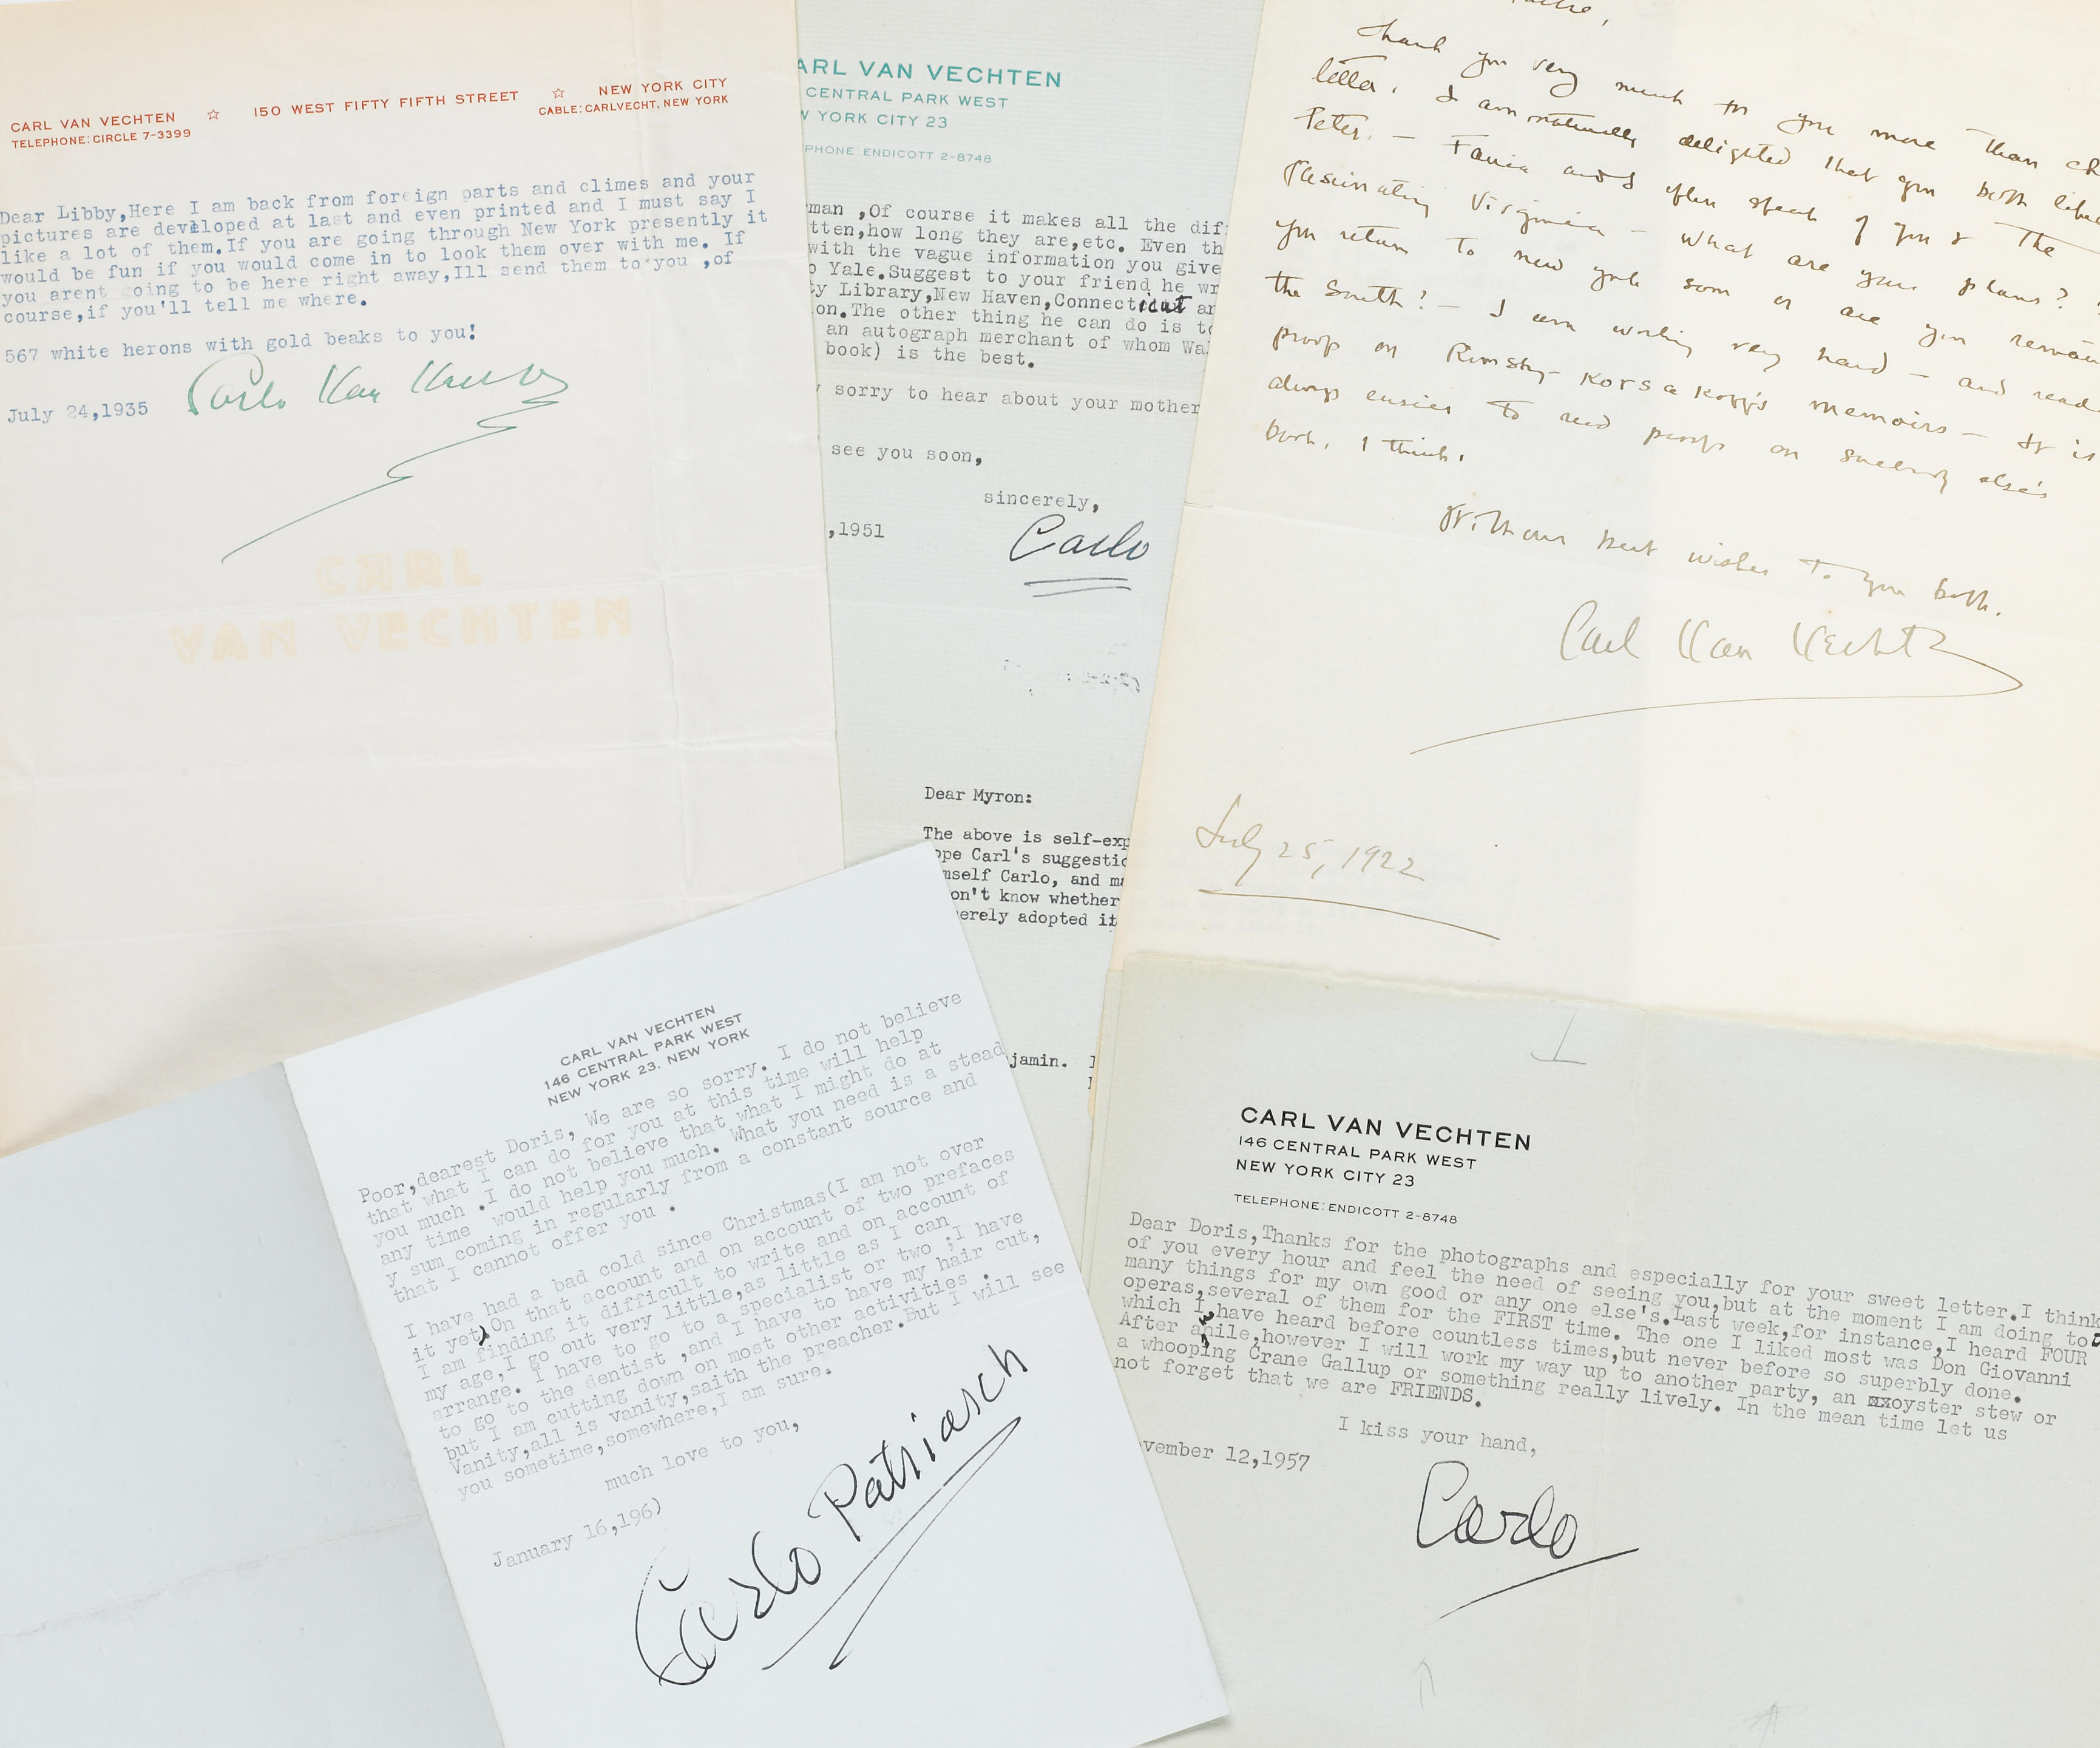 CARL VAN VECHTEN ☆ 150 WEST FIFTY FIFTH STREET ☆ NEW YORK CITY
TELEPHONE: CIRCLE 7-3399 CABLE: CARLVECHT, NEW YORK
Dear Libby,Here I am back from foreign parts and climes and your
pictures are developed at last and even printed and I must say I
like a lot of them.If you are going through New York presently it
would be fun if you would come in to look them over with me. If
you arent going to be here right away,Ill send them to you ,of
course,if you'll tell me where.
567 white herons with gold beaks to you!
July 24,1935
Carlo Van Vechten
CARL
VAN VECHTEN
ARL VAN VECHTEN
CENTRAL PARK WEST
W YORK CITY 23
PHONE: ENDICOTT 2-8748
man ,Of course it makes all the dif
tten,how long they are,etc. Even th
with the vague information you give
o Yale.Suggest to your friend he wr
ty Library,New Haven,Connecticut ar
on.The other thing he can do is to
an autograph merchant of whom Wa
book) is the best.
y sorry to hear about your mother
see you soon,
sincerely,
,1951
Carlo
Dear Myron:
The above is self-exp
ope Carl's suggestio
mself Carlo, and ma
on't know whether
erely adopted it
jamin.
Thank you very much for your more than ch
letter. I am naturally delighted that you both like
Peter. — Fania and I often speak of you & the
fascinating Virginia — What are your plans?
you return to new york soon or are you remain
the South? — I am working very hard — and read
proofs on Rimsky-Korsakoff's memoirs — It is
always easier to read proofs on somebody else's
book, I think.
With our best wishes to you both.
Carl Van Vechten
July 25, 1922
CARL VAN VECHTEN
146 CENTRAL PARK WEST
NEW YORK 23, NEW YORK
Poor,dearest Doris, We are so sorry. I do not believe
that what I can do for you at this time will help
you much .I do not believe that what I might do at
any time would help you much. What you need is a stead
y sum coming in regularly from a constant source and
that I cannot offer you .
I have had a bad cold since Christmas(I am not over
it yet)On that account and on account of two prefaces
I am finding it difficult to write and on account of
my age,I go out very little,as little as I can
arrange. I have to go to a specialist or two ;I have
to go to the dentist ,and I have to have my hair cut,
but I am cutting down on most other activities .
Vanity,all is vanity,saith the preacher.But I will see
you sometime,somewhere,I am sure.
much love to you,
January 16,196)
Carlo Patriarch
CARL VAN VECHTEN
146 CENTRAL PARK WEST
NEW YORK CITY 23
TELEPHONE: ENDICOTT 2-8748
Dear Doris,Thanks for the photographs and especially for your sweet letter.I think
of you every hour and feel the need of seeing you,but at the moment I am doing too
many things for my own good or any one else's.Last week,for instance,I heard FOUR
operas,several of them for the FIRST time. The one I liked most was Don Giovanni
which I,have heard before countless times,but never before so superbly done.
After ahile,however I will work my way up to another party, an xxoyster stew or
a whooping Crane Gallup or something really lively. In the mean time let us
not forget that we are FRIENDS.
I kiss your hand,
vember 12,1957
Carlo